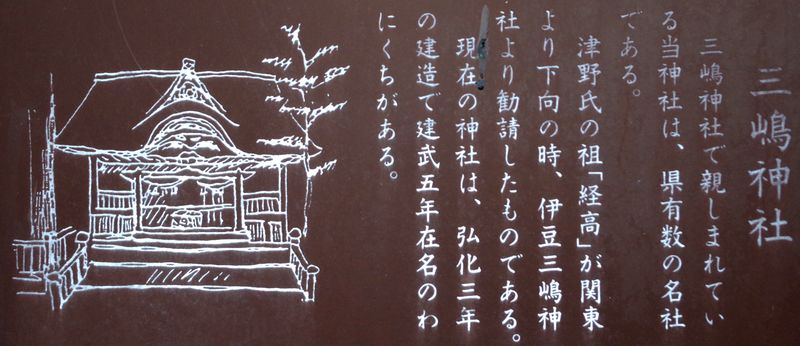 三嶋神社
三嶋神社で親しまれてい
る当神社は、県有数の名社
である。
津野氏の祖「経高」が関東
より下向の時、伊豆三嶋神
社より勧請したものである。
現在の神社は、弘化三年
の建造で建武五年在名のわ
にくちがある。